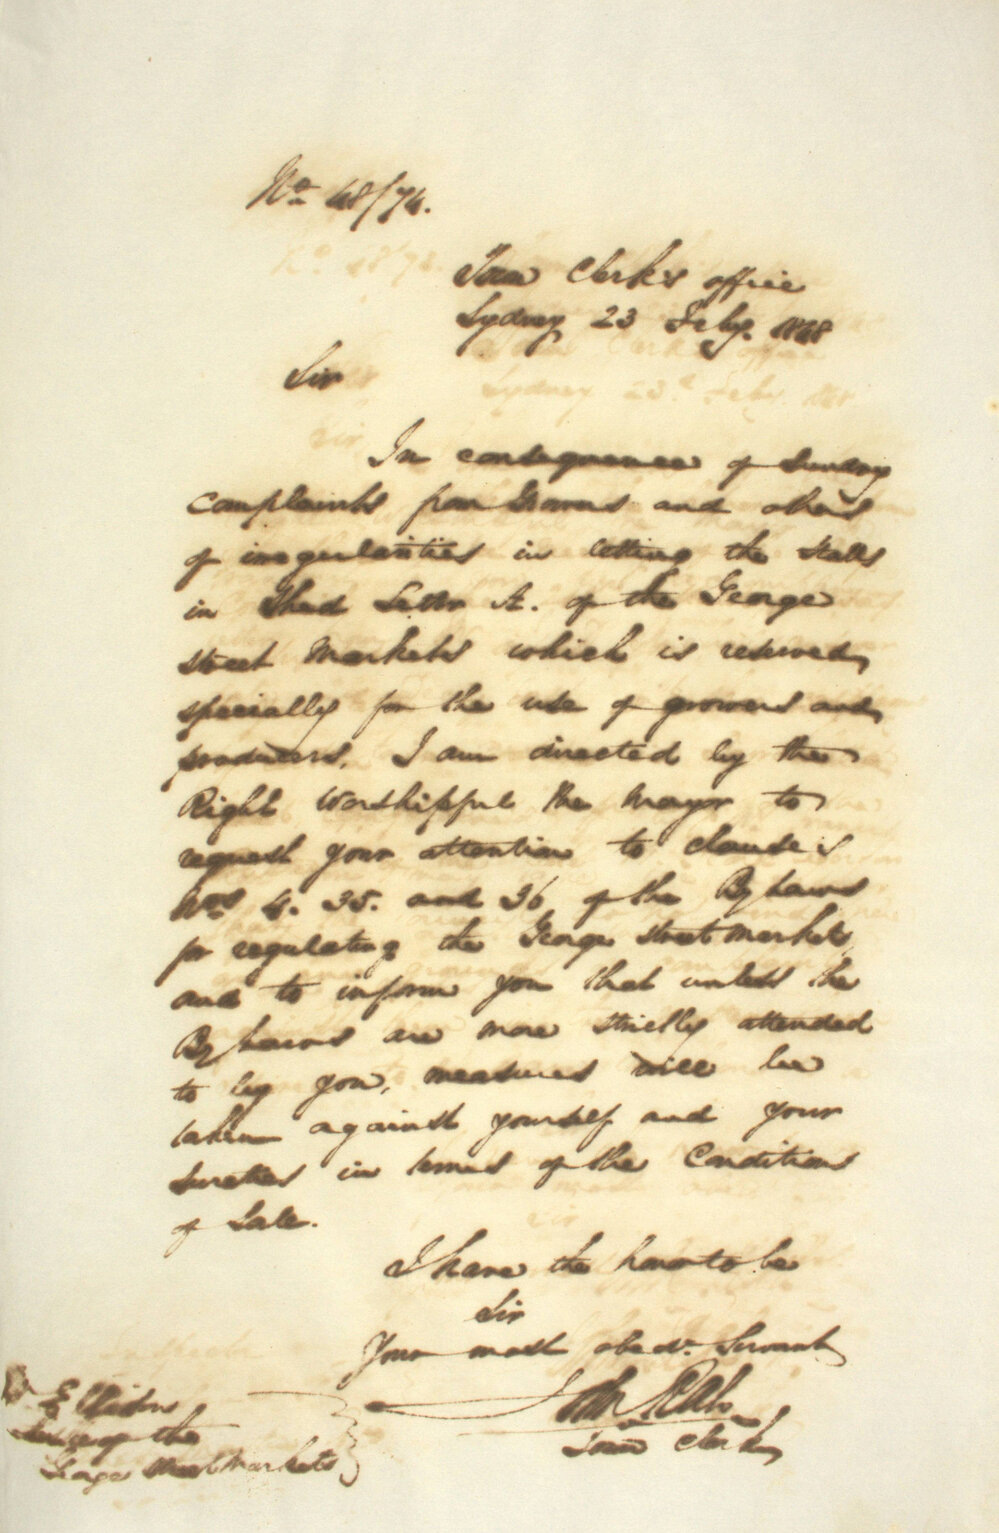 No 48/74.
Town Clerk's office
Sydney 23 Feby. 1868
Sir
In consequence of Sundry
complaints from Growers and others
of irregularities in letting the Stalls
in Shed Letter A. of the George
street Markets which is reserved
specially for the use of growers and
producers. I am directed by the
Right Worshipful the Mayor to
request your attention to clauses
Nos 4. 35. and 36 of the By Laws
for regulating the George street Markets
and to inform you that unless the
By Laws are more strictly attended
to by you, measures will be
taken against yourself and your
Sureties in terms of the Conditions
of Sale.
I have the honor to be
Sir
Your most obedt. Servant
Town Clerk
Lessee of the
George Street Markets